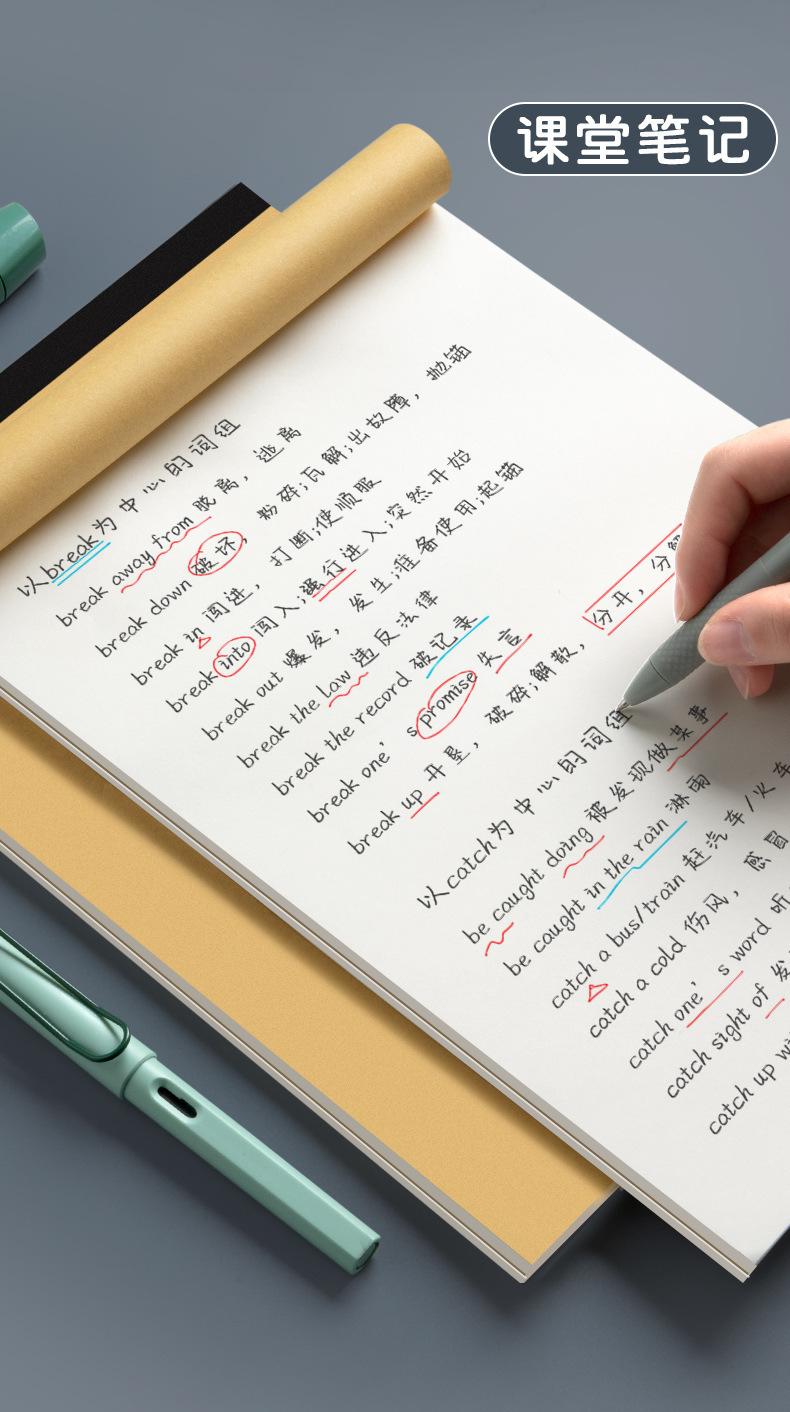 课堂笔记
以break为中心的词组
break away from 脱离，逃离
break down 破坏，粉碎;瓦解;出故障，抛锚
break in 闯进，打断;使顺服
break into 闯入;强行进入;突然开始
break out 爆发，发生;准备使用;起锚
break the law 违反法律
break the record 破记录
break one's promise 失言
break up 开垦，破碎;解散，分开，分解
以catch为中心的词组
be caught doing 被发现做某事
be caught in the rain 淋雨
catch a bus/train 赶汽车/火车
catch a cold 伤风，感冒
catch one's word 听
catch sight of 发
catch up